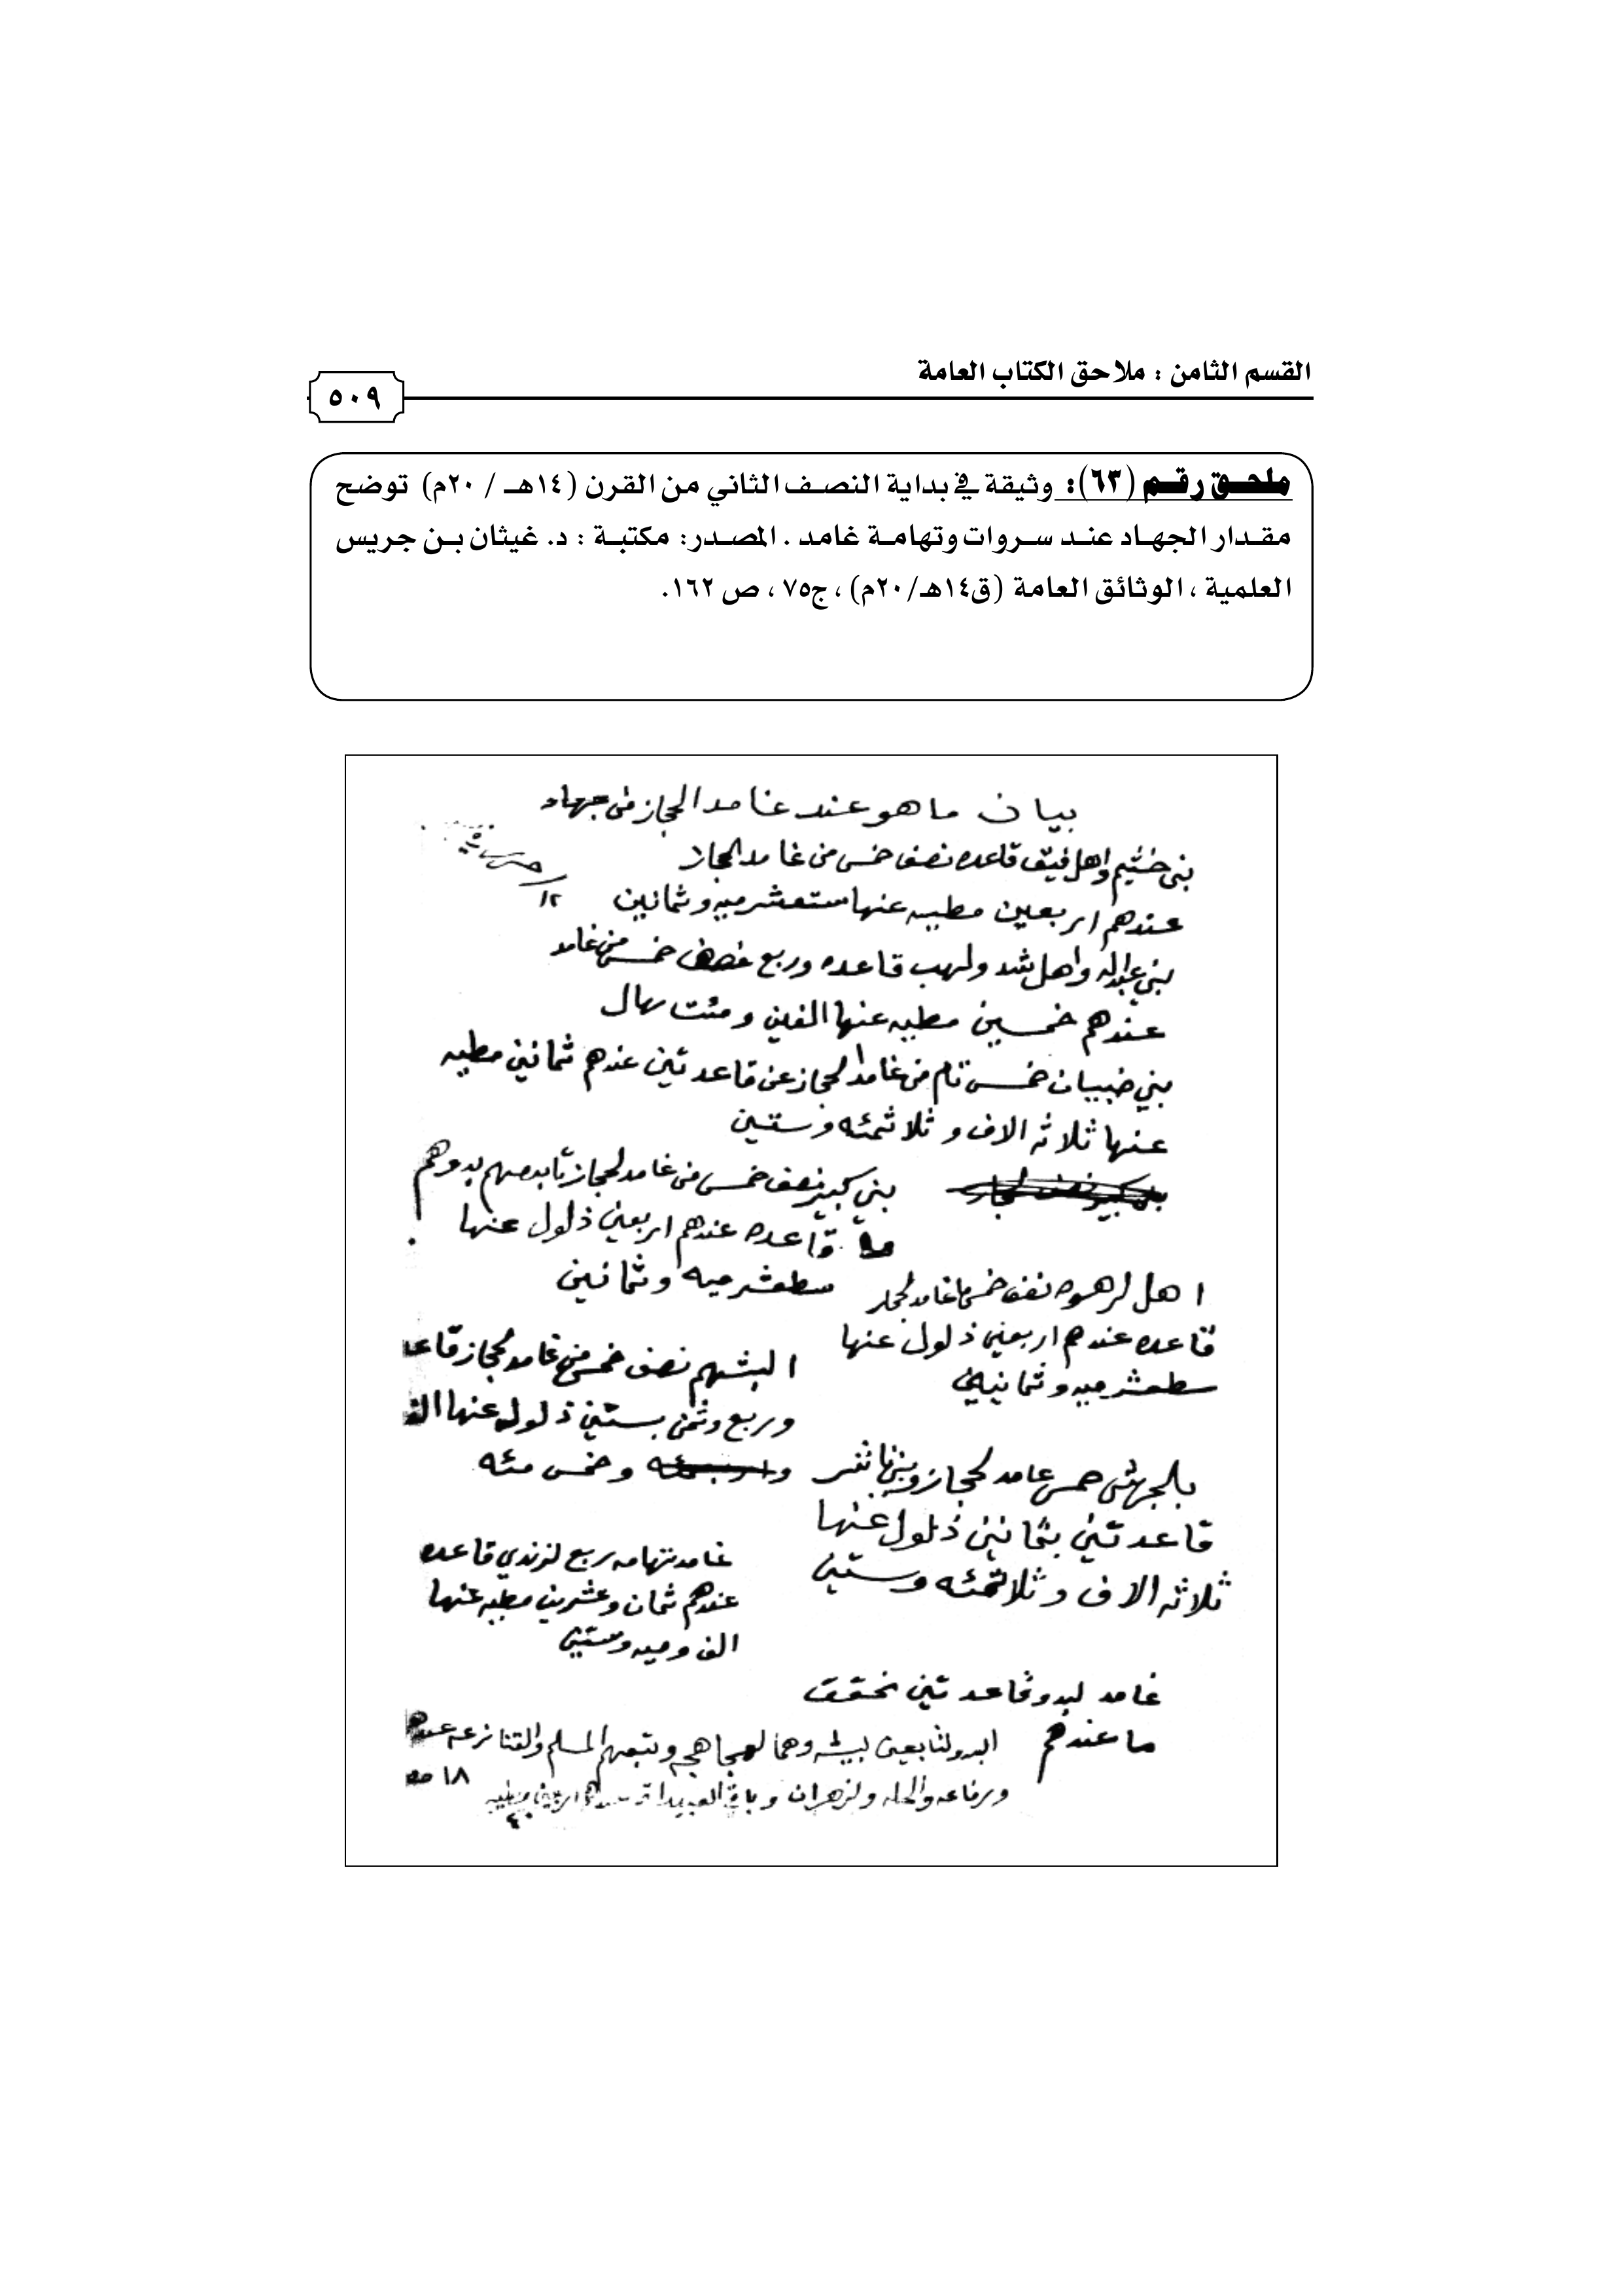 القسم الثامن : ملاحق الكتاب العامة
٥٠٩
ملحق رقم (٦٣): وثيقة في بداية النصف الثاني من القرن (١٤هـ / ٢٠م) توضح
مقدار الجهاد عند سروات وتهامة غامد . المصدر: مكتبة : د. غيثان بن جريس
العلمية ، الوثائق العامة (ق١٤هـ/٢٠م) ، ج٧٥ ، ص ١٦٢.
بيان ما هو عند غامد الحجاز من جهاد
بني خثيم واهل فيق قاعده نصف خمس من غامد الحجاز
عندهم اربعين مطيه عنها ستعشر ميه وثمانين
١٢
بني عبدالله واهل شد ولهب قاعده وربع نصف خمس من غامد
عندهم خمسين مطيه عنها الفين ومئت ريال
بني ضبيان خمس تام من غامد الحجاز عن قاعدتين عندهم ثمانين مطيه
عنها ثلاثه الاف وثلاثمئه وستين
بني كبير نصف خمس من غامد الحجاز بدوهم
قاعده عندهم اربعين ذلول عنها
سطعشر ميه وثمانين
اهل الرهوه نصف خمس غامد الحجاز
قاعده عندهم اربعين ذلول عنها
سطعشر ميه وثمانين
البشهم نصف خمس من غامد الحجاز
وربع وثمن بستين ذلول عنها
وخمس مئه
بلجرشي خمس غامد الحجاز
قاعدتين بثمانين ذلول عنها
ثلاثه الاف وثلاثمئه وستين
غامد تهامه ربع الزندي قاعده
عندهم ثمان وعشرين مطيه عنها
الف وميه وستين
غامد البدو قاعدتين نحقق
ما عندهم
البدو التابعين وهما المسلم والقنازعه عندهم
١٨
ورفاعه والحله والزهران وباقي العبيدات
٤٠